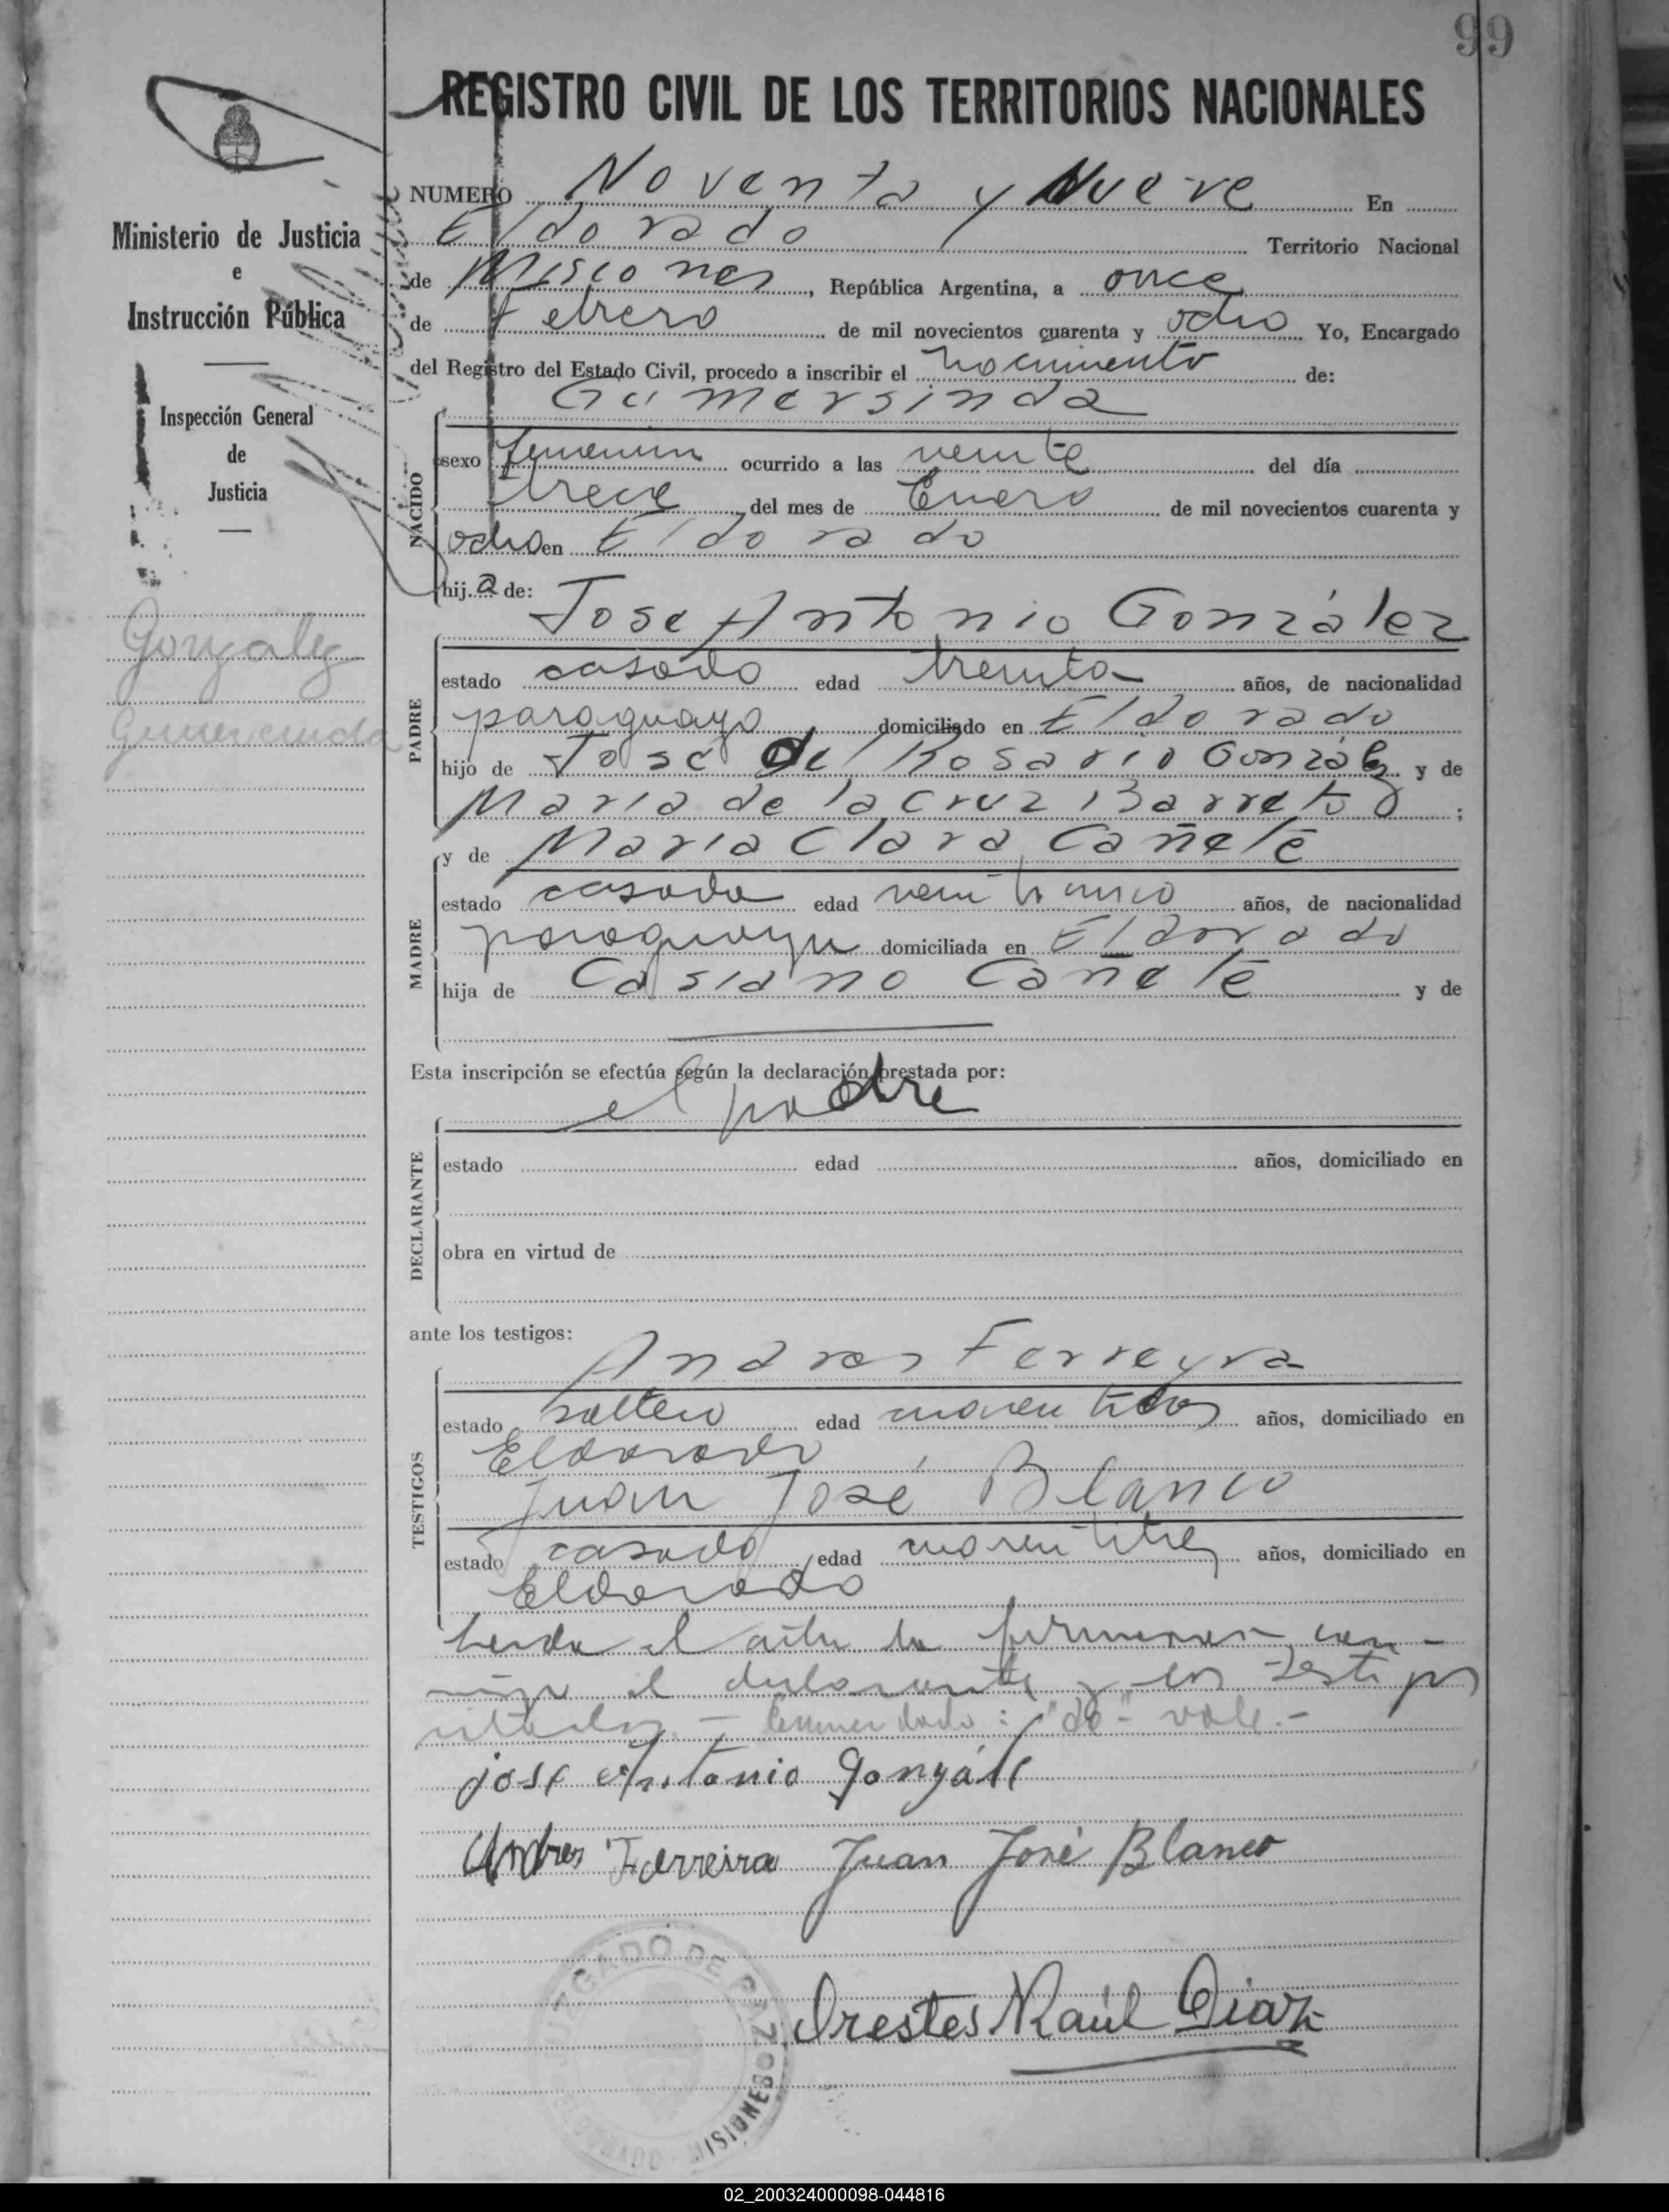 99
REGISTRO CIVIL DE LOS TERRITORIOS NACIONALES
Ministerio de Justicia
e
Instrucción Pública
Inspección General
de
Justicia
González
Gumercinda
NUMERO Noventa y Nueve En
Eldorado Territorio Nacional
de Misiones, República Argentina, a once
de Febrero de mil novecientos cuarenta y ocho Yo, Encargado
del Registro del Estado Civil, procedo a inscribir el nacimiento de:
Gumersinda
NACIDO
sexo femenino ocurrido a las veinte del día
trece del mes de Enero de mil novecientos cuarenta y
ocho en Eldorado
hij a de:
José Antonio González
PADRE
estado casado edad treinta años, de nacionalidad
paraguayo domiciliado en Eldorado
hijo de José del Rosario González y de
María de la Cruz Barreto ;
y de María Clara Cañete
MADRE
estado casada edad veinticinco años, de nacionalidad
paraguaya domiciliada en Eldorado
hija de Casiano Cañete y de
Esta inscripción se efectúa según la declaración prestada por:
el padre
DECLARANTE
estado edad años, domiciliado en
obra en virtud de
ante los testigos:
Andres Ferreyra
TESTIGOS
estado soltero edad cuarentidos años, domiciliado en
Eldorado
Juan José Blanco
estado casado edad cuarentitres años, domiciliado en
Eldorado
Leida el acta la firmaron con-
migo el declarante y los testigos
citados.- Enmendado: "de"- vale.-
jose Antonio Gonzále
Andres Ferreira Juan José Blanco
Orestes Raúl Diaz
JUZGADO DE PAZ
ELDORADO - MISIONES
02_200324000098-044816